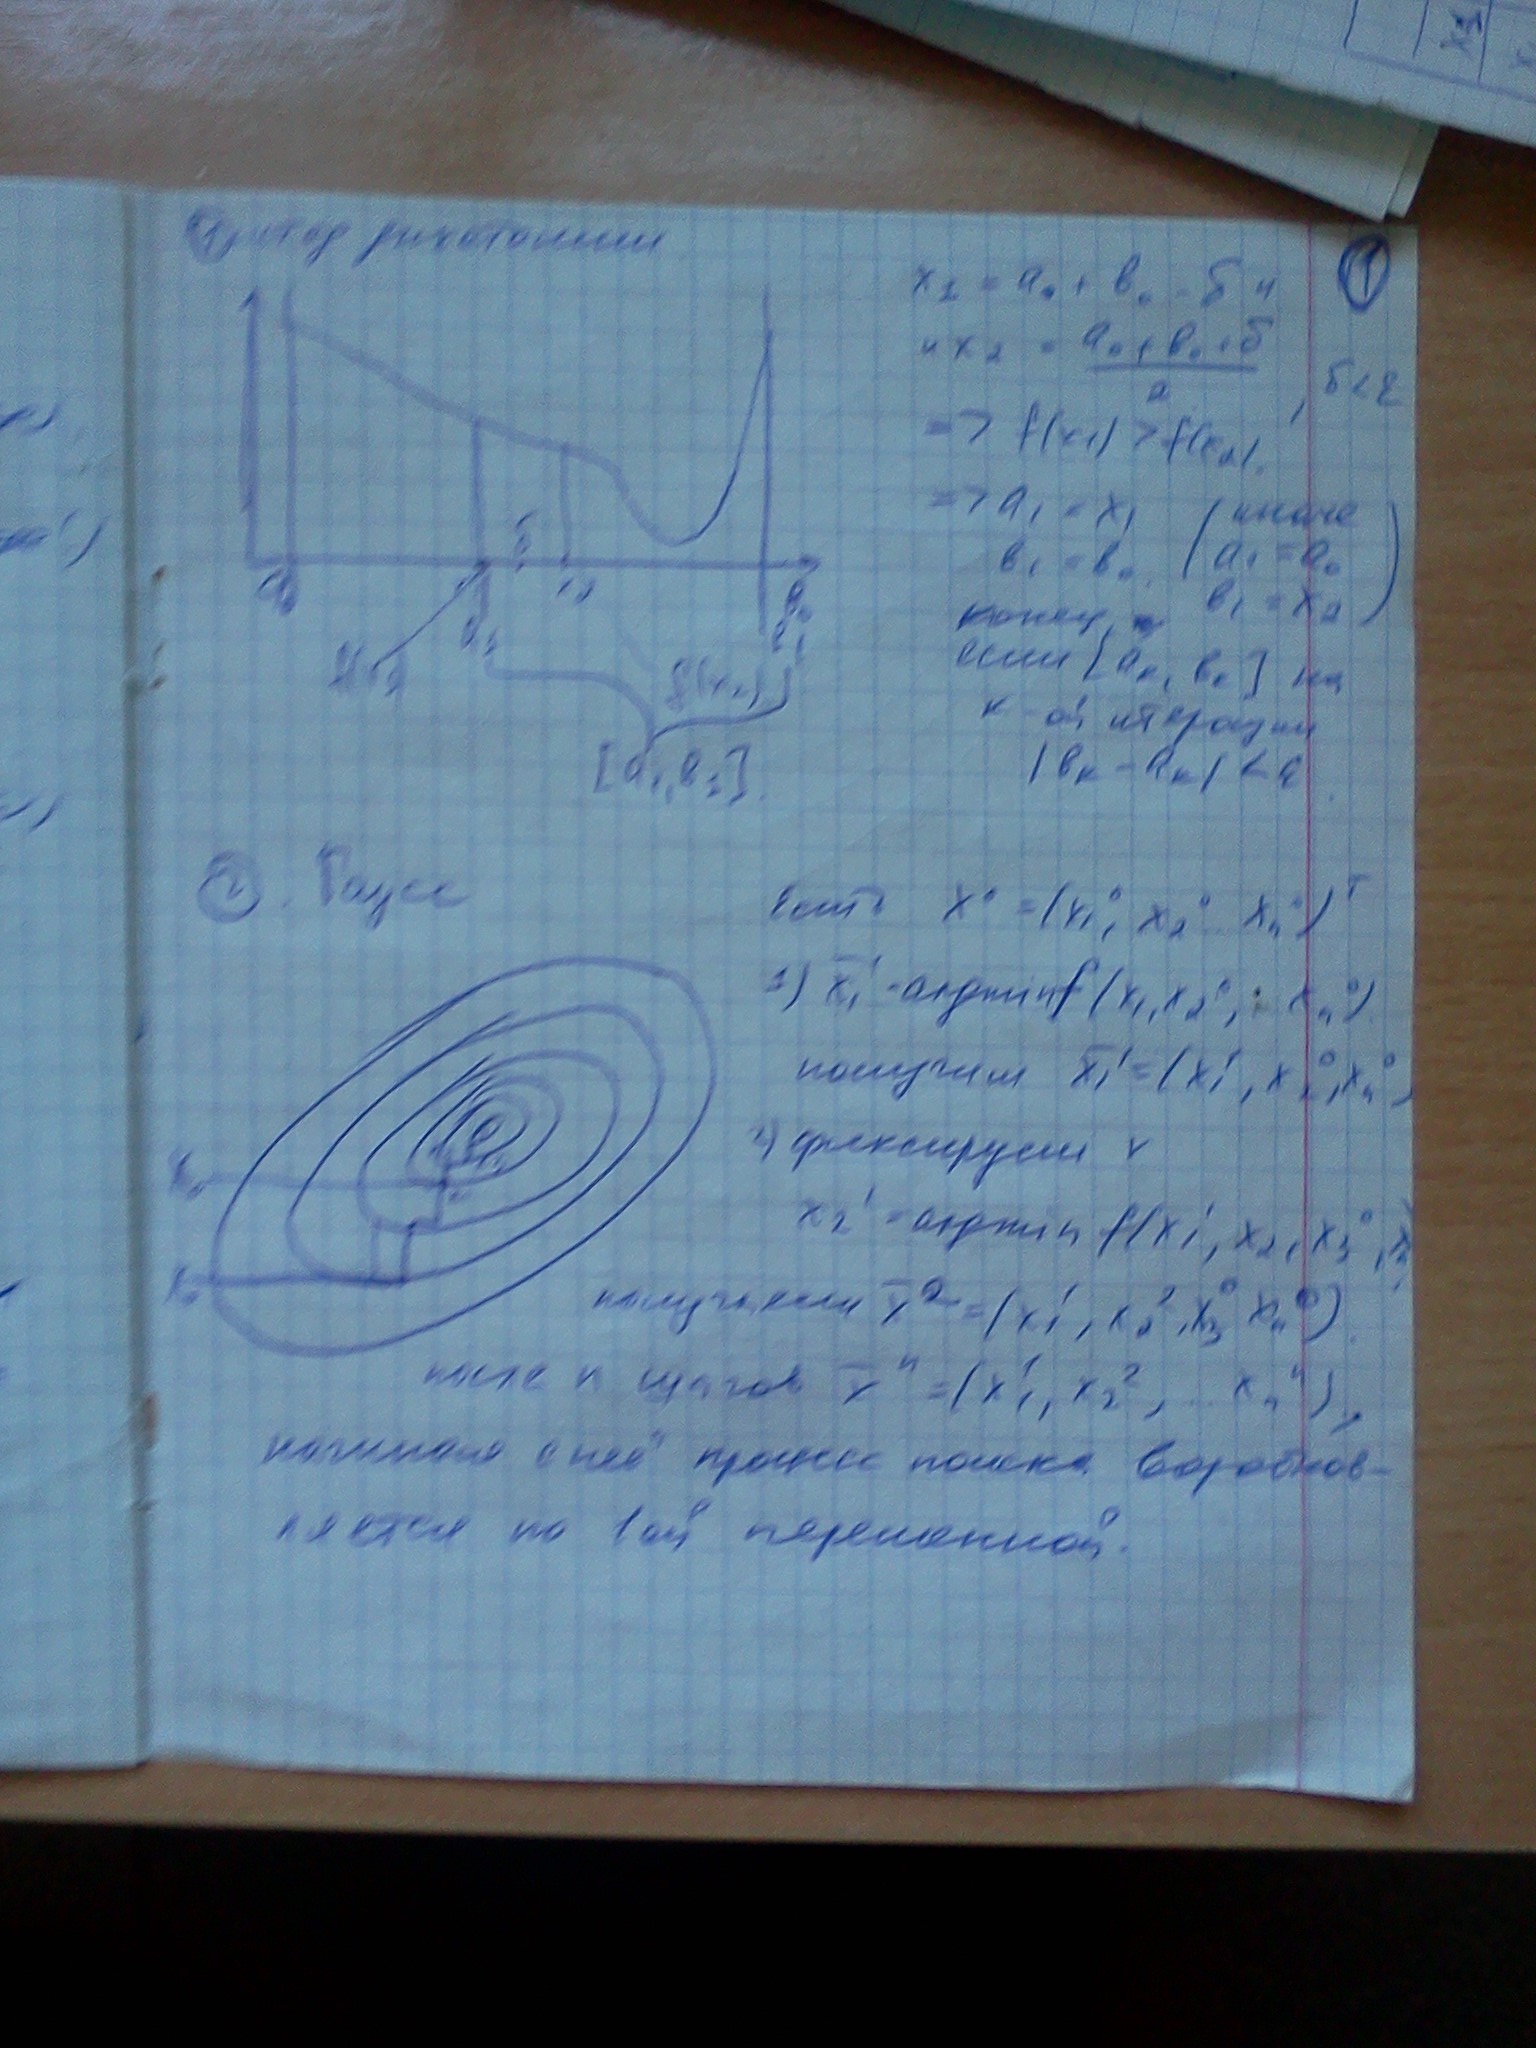 ① метод дихотомии
①
x₁ = a₀ + b₀ - δ и
и x₂ = a₀ + b₀ + δ / 2, δ < ε
=> f(x₁) > f(x₂).
=> a₁ = x₁ (иначе
b₁ = b₀. a₁ = a₀
b₁ = x₂)
конец
если [aₖ, bₖ] на
к-ой итерации
|bₖ - aₖ| < ε.
a₀
b₀
f(x₂)
[a₁, b₁].
②. Гаусс
есть x⁰ = (x₁⁰, x₂⁰ ... xₙ⁰)ᵀ
1) x̄₁¹ = argmin f(x₁, x₂⁰, ... xₙ⁰).
получим x̄₁¹ = (x₁¹, x₂⁰, xₙ⁰)
2) фиксируем x
x₂¹ = argmin f(x₁¹, x₂, x₃⁰,
получаем x̄² = (x₁¹, x₂², x₃⁰ xₙ⁰).
x₀
x₀
после n шагов x̄ⁿ = (x₁¹, x₂², ... xₙⁿ),
начиная с неё процесс поиска возобнов-
ляется по 1ой переменной.